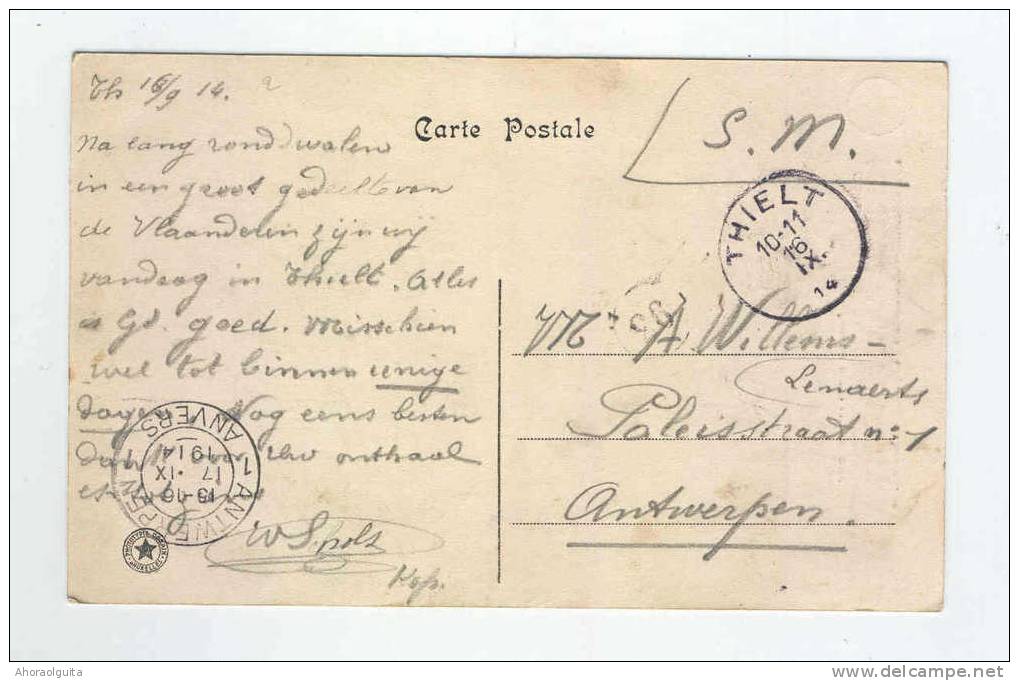 Th 16/9 14.
Carte Postale
S. M.
Na lang ronddwalen
in een groot gedeelte van
de Vlaanderen zijn wij
vandaag in Thielt. Alles
is Gd. goed. Misschien
wel tot binnen eenige
dagen. Nog eens besten
dank voor Uw onthaal
W Spols
Kop.
THIELT
10-11
16
IX
14
M A Willems-
Lenaerts
Paleisstraat no 1
Antwerpen.
1 ANTWERPEN
ANVERS
17 · IX
1914
BRUXELLES
Ahoraolguita
www.delcampe.net